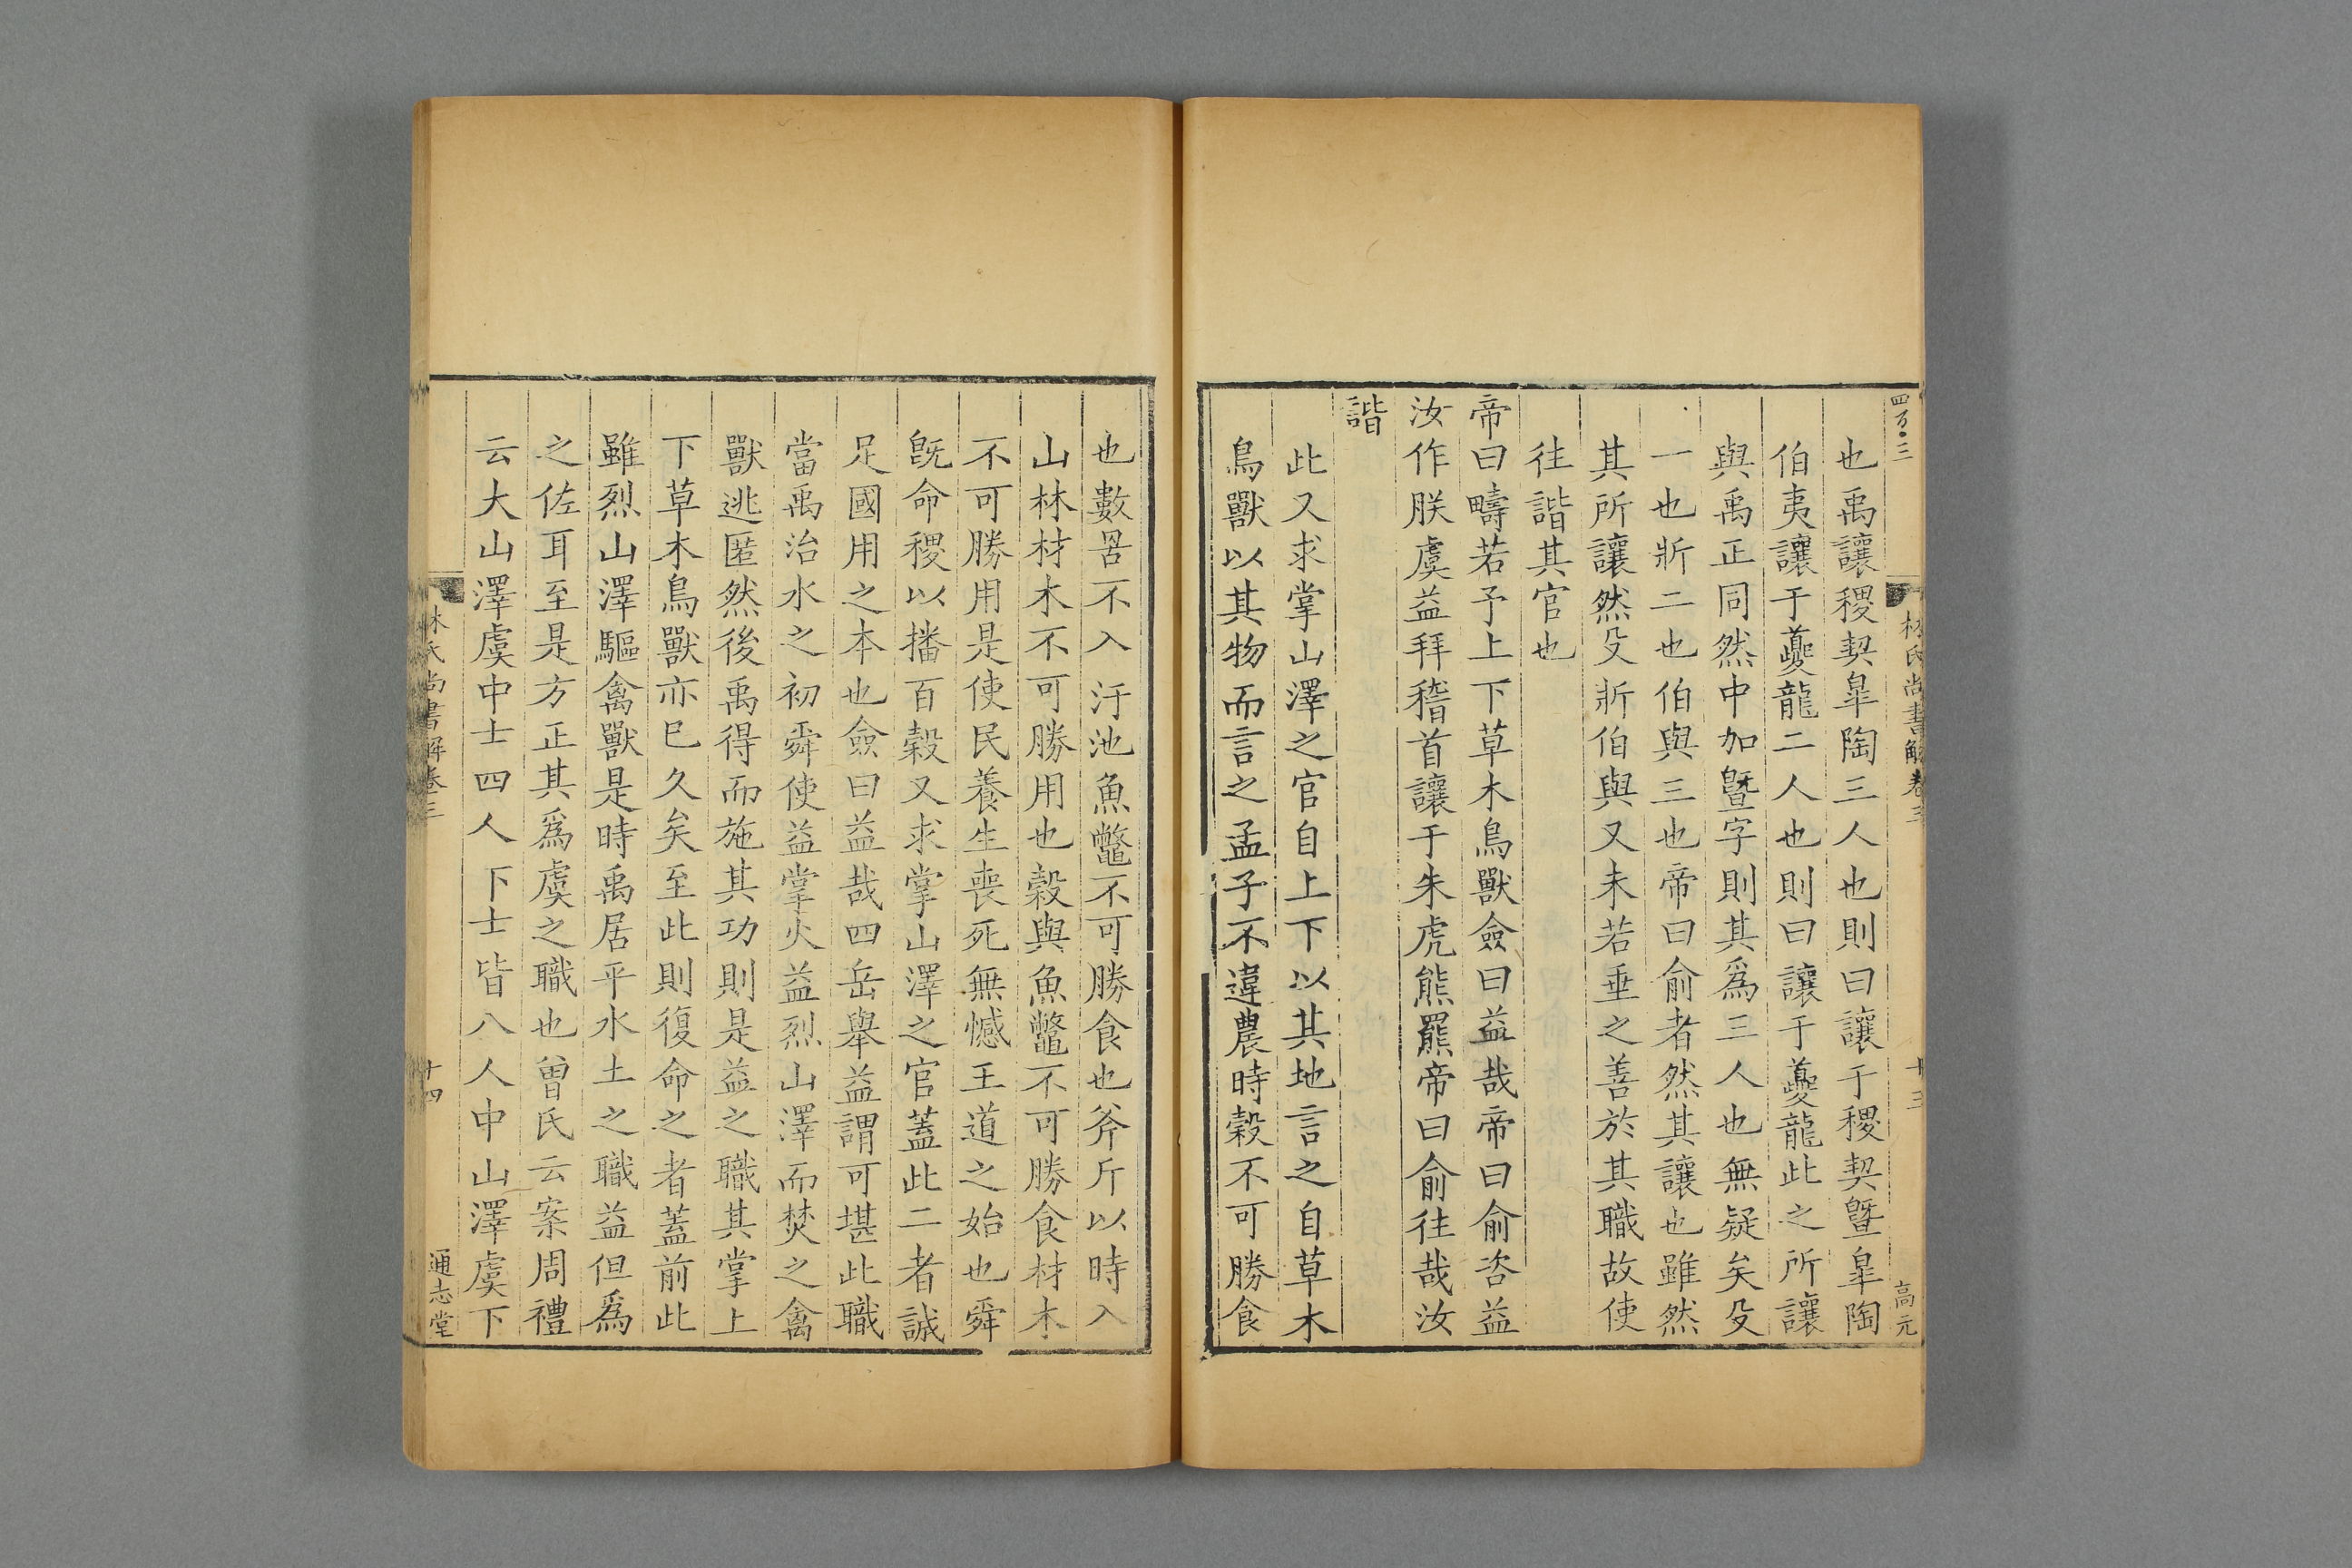 四百〇二
林氏尚書解卷三
十三
高元
也禹讓稷契皐陶三人也則曰讓于稷契曁皐陶
伯夷讓于夔龍二人也則曰讓于夔龍此之所讓
與禹正同然中加曁字則其爲三人也無疑矣殳
一也斨二也伯與三也帝曰俞者然其讓也雖然
其所讓然殳斨伯與又未若垂之善於其職故使
往諧其官也
帝曰疇若予上下草木鳥獸僉曰益哉帝曰俞咨益
汝作朕虞益拜稽首讓于朱虎熊羆帝曰俞往哉汝
諧
此又求掌山澤之官自上下以其地言之自草木
鳥獸以其物而言之孟子不違農時穀不可勝食
也數罟不入汙池魚鼈不可勝食也斧斤以時入
山林材木不可勝用也穀與魚鼈不可勝食材木
不可勝用是使民養生喪死無憾王道之始也舜
旣命稷以播百穀又求掌山澤之官蓋此二者誠
足國用之本也僉曰益哉四岳舉益謂可堪此職
當禹治水之初舜使益掌火益烈山澤而焚之禽
獸逃匿然後禹得而施其功則是益之職其掌上
下草木鳥獸亦巳久矣至此則復命之者蓋前此
雖烈山澤驅禽獸是時禹居平水土之職益但爲
之佐耳至是方正其爲虞之職也曾氏云案周禮
云大山澤虞中士四人下士皆八人中山澤虞下
林氏尚書解卷三
十四
通志堂